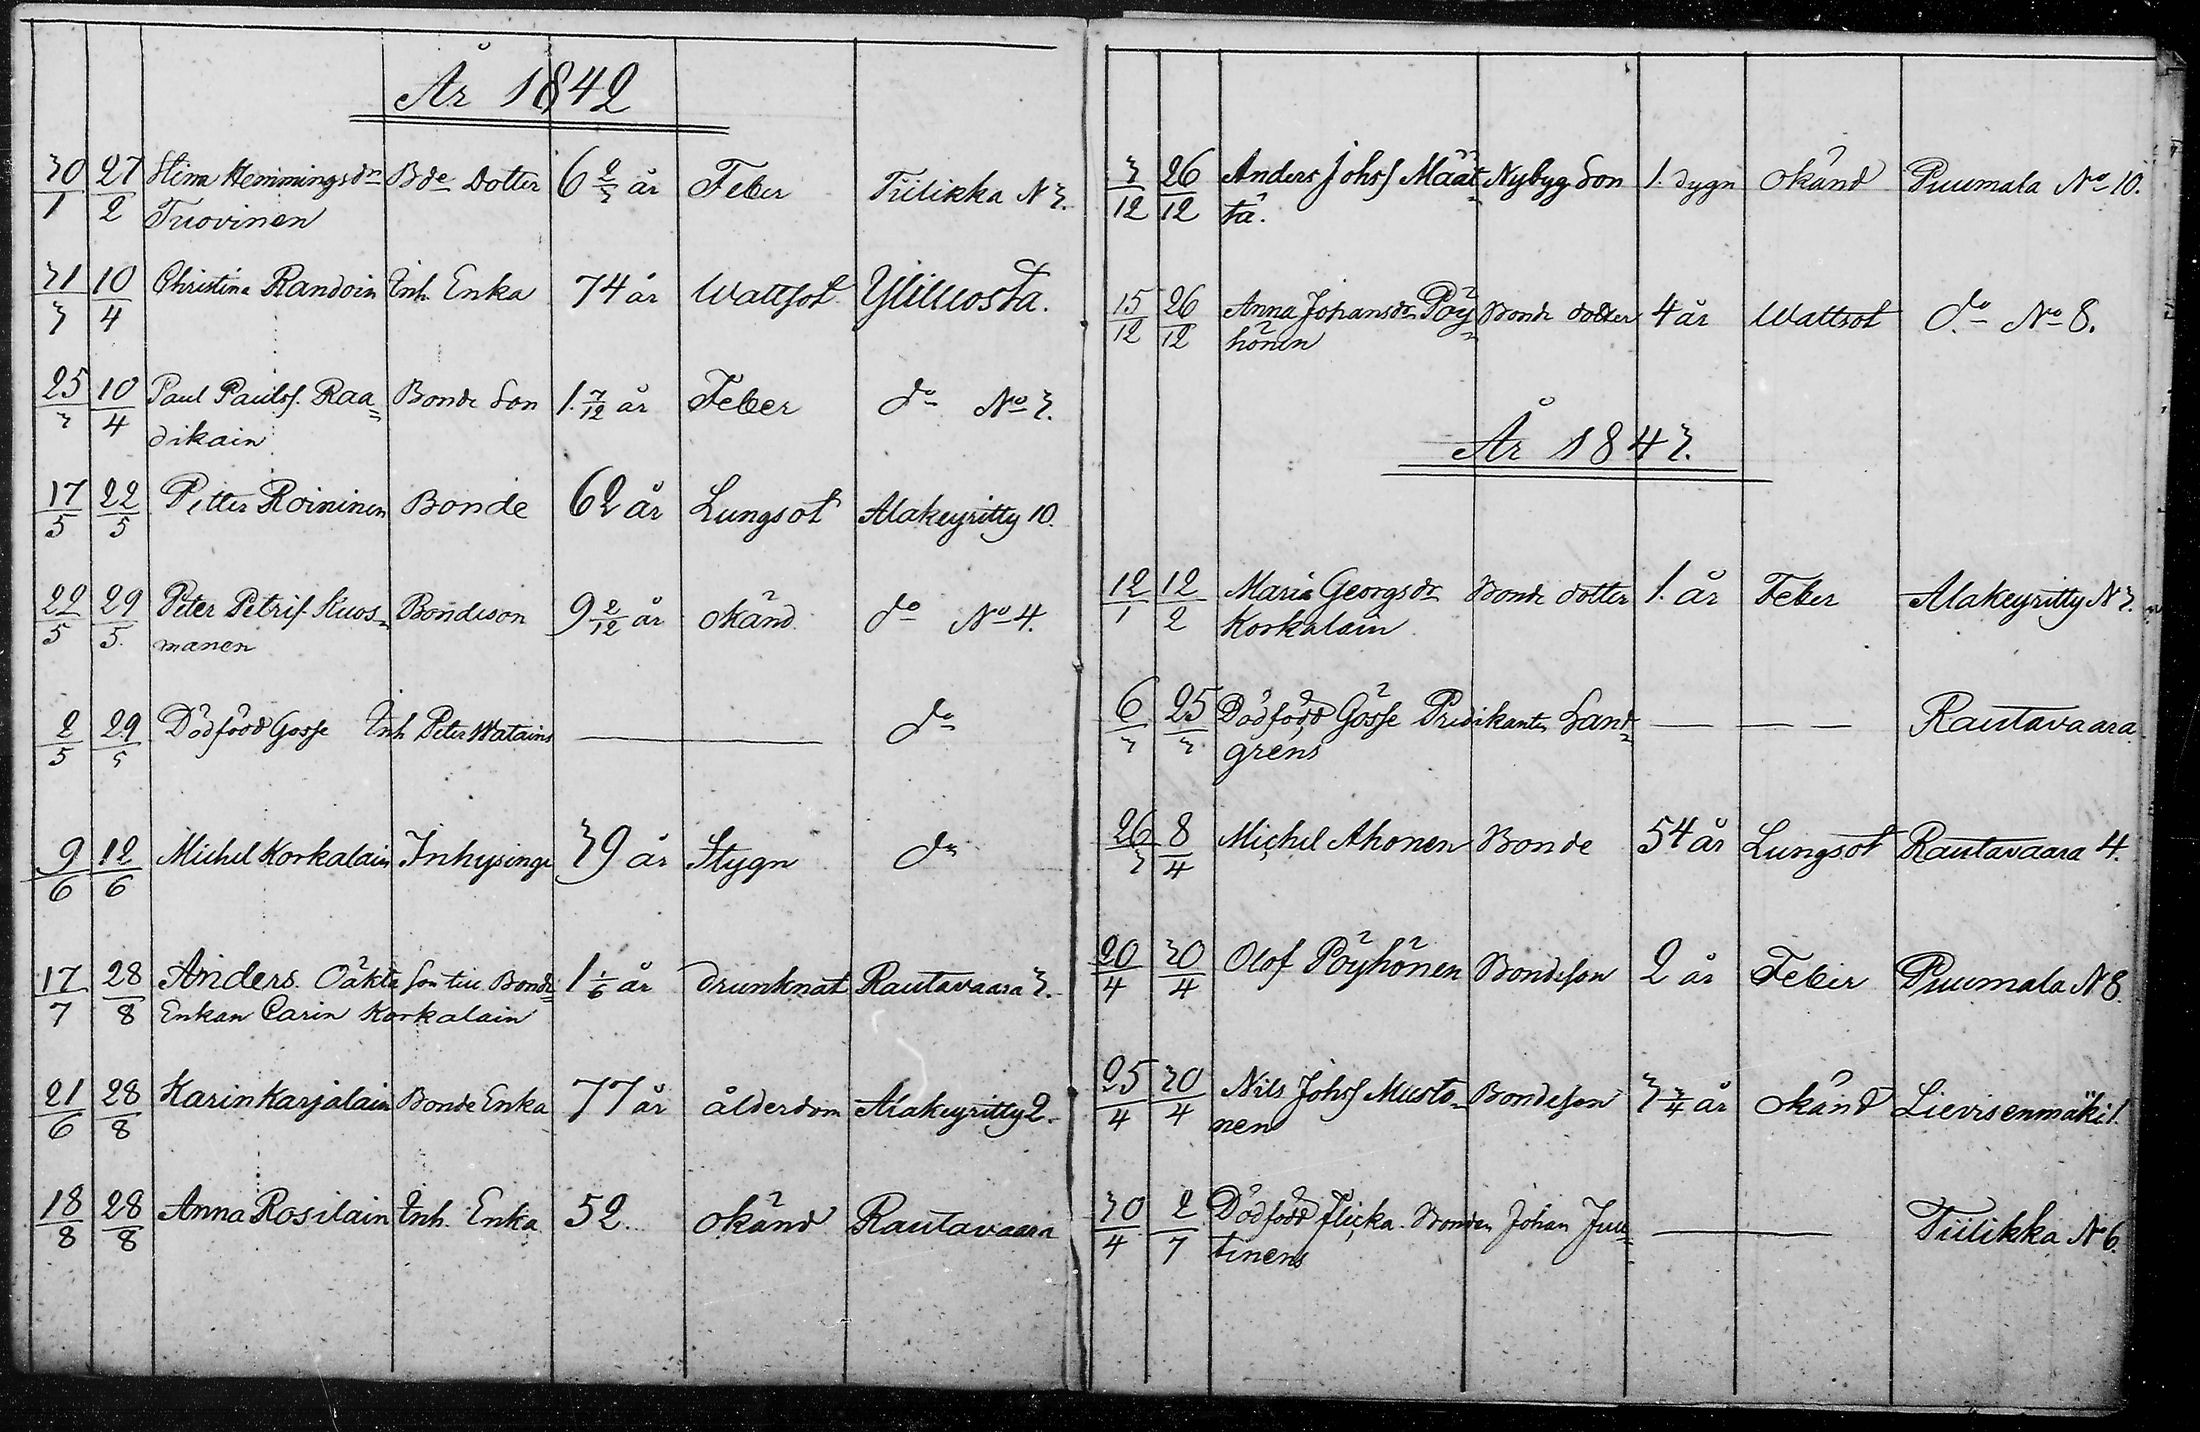 År 1842
30/1 27/2 Stina Hemmingsdr Bde Dotter 6 2/3 år Feber Tiilikka N 3.
Tuovinen
31/3 10/4 Christina Randoin Inh. Enka 74 år Wattsot Yliluosta.
25/3 10/4 Paul Paulss. Raa= Bonde Son 1. 7/12 år Feber do No 3.
dikain
17/5 22/5 Petter Roininen Bonde 62 år Lungsot Alakeyritty 10.
22/5 29/5. Peter Petris. Kuos= Bondeson 9 2/12 år okänd do No 4.
manen
2/5 29/5 Dödfödd Gosse Inh Peter Watains — do
9/6 12/6 Michel Korkalain Inhysinge 39 år Stygn do
17/7 28/8 Anders. Oäkta Son till Bonde= 1 1/6 år drunknat Rautavaara 3.
Enkan Carin Korkalain
21/6 28/8 Karin Karjalain Bonde Enka 77 år ålderdom Alakeyritty 2.
18/8 28/8 Anna Rosilain Inh. Enka 52. okänd Rautavaara
3/12 26/12 Anders Johss Määt= Nybyg Son 1. dygn okänd Puumala No 10.
tä.
15/12 26/12 Anna Johansdr Pöy= Bonde dotter 4 år Wattsot do No 8.
hönen
År 1843.
12/1 12/2 Maria Georgsdr Bonde dotter 1. år Feber Alakeyritty N 3.
Korkalain
6/3 25/3 Dödfödd Gosse Predikants Land= — — — Rautavaara
grens
26/3 8/4 Michel Ahonen Bonde 54 år Lungsot Rautavaara 4.
20/4 30/4 Olof Pöyhönen Bondeson 2 år Feber Puumala N 8.
25/4 30/4 Nils Johss Musto= Bondeson 3 3/4 år okänd Lievisenmäki 1.
nen
30/4 2/7 Dödfödd Flicka Bonden Johan Juu= — Tiilikka No 6.
tinens